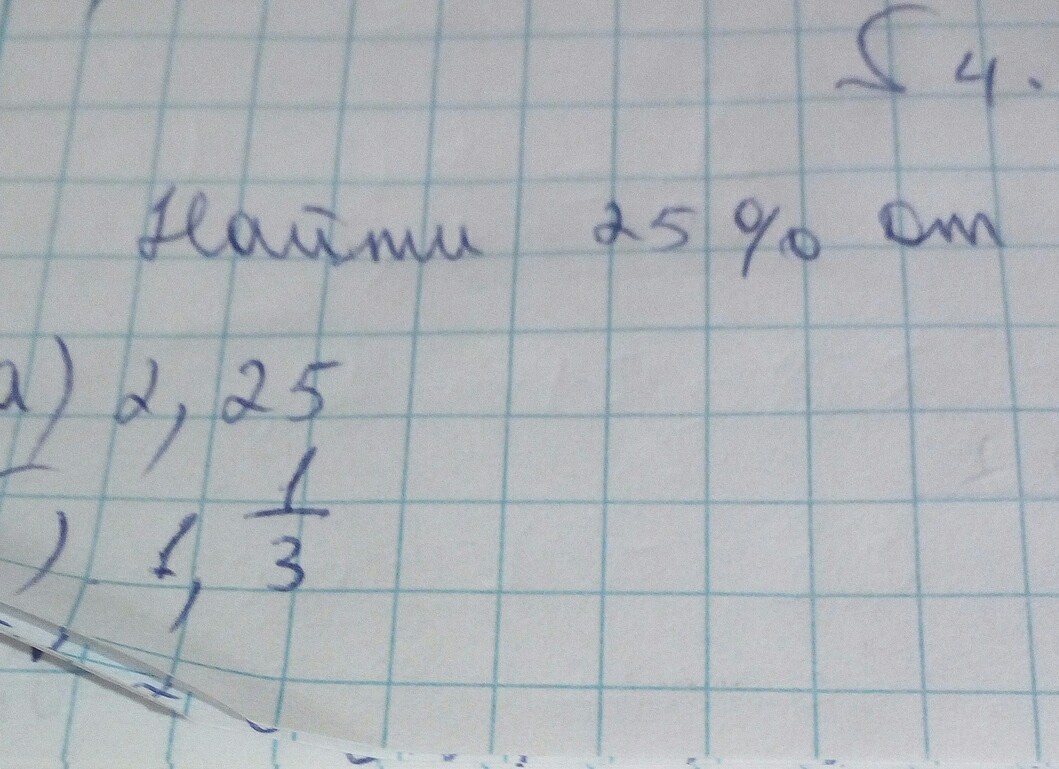 § 4.
Найти 25% от
а) 2,25
) 1, 1/3